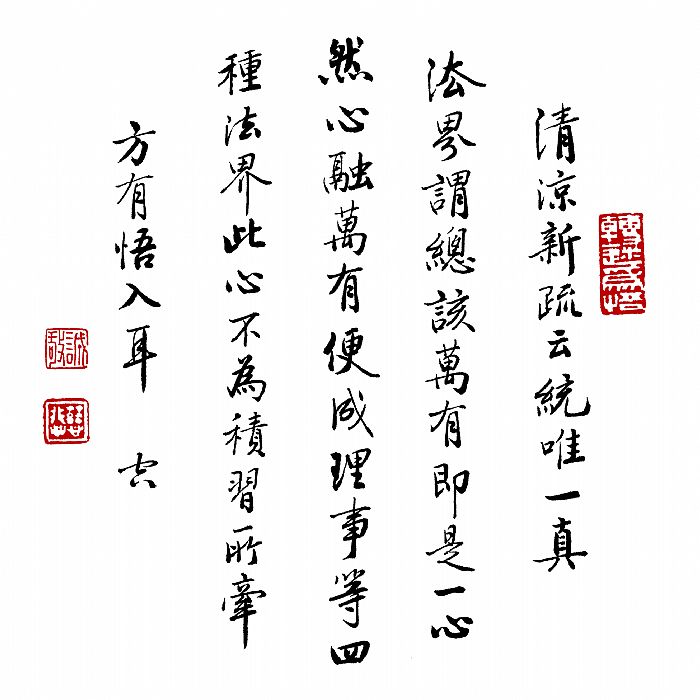 清涼新疏云統唯一真
法界謂總該萬有即是一心
然心融萬有便成理事等四
種法界此心不為積習所牽
方有悟入耳